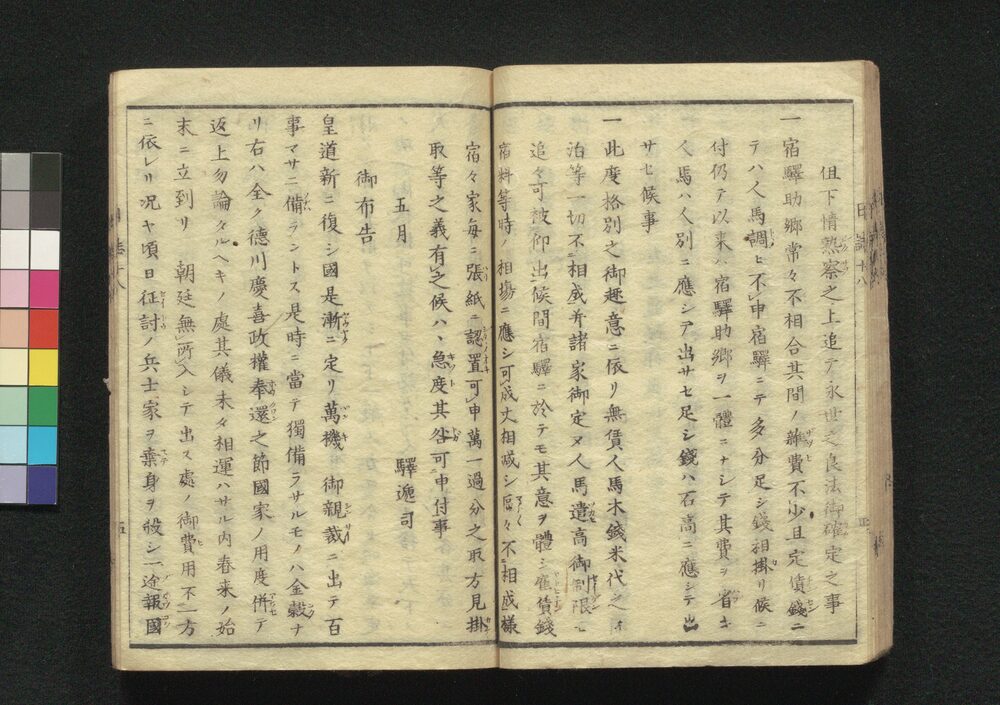 但下情熟察之上追テ永世之良法御確定之事
一宿驛助郷常々不相合其間ノ雑費不少且定賃錢ニ
テハ人馬調ヒ不申宿驛ニテ多分足シ錢相掛リ候ニ
付仍テ以来ハ宿驛助郷ヲ一體ニナシテ其費ヲ省キ
人馬ハ人別ニ應シテ出サセ足シ錢ハ石高ニ應シテ出
サセ候事
一此度格別之御趣意ニ依リ無賃人馬木錢米代之
治等一切不相成并諸家御定メ人馬遣高御制限モ
追々可被仰出候間宿驛ニ於テモ其意ヲ體シ雇賃錢
宿料等時ノ相場ニ應シ可成丈相减シ區々不相成様
宿々家毎ニ張紙ニ認置可申萬一過分之取方見掛
取等之義有之候ハヽ急度其咎可申付事
五月
驛遞司
御布告
皇道新ニ復シ國是漸ニ定リ萬機御親裁ニ出テ百
事マサニ備ラントス是時ニ當テ獨備ラサルモノハ金穀ナ
リ右ハ全ク德川慶喜政權奉還之節國家ノ用度併テ
返上勿論タルヘキノ處其儀未タ相運ハサル内春来ノ始
末ニ立到リ 朝廷無所入シテ出ス處ノ御費用不一方
ニ依レリ况ヤ頃日征討ノ兵士家ヲ棄身ヲ殺シ一途報國